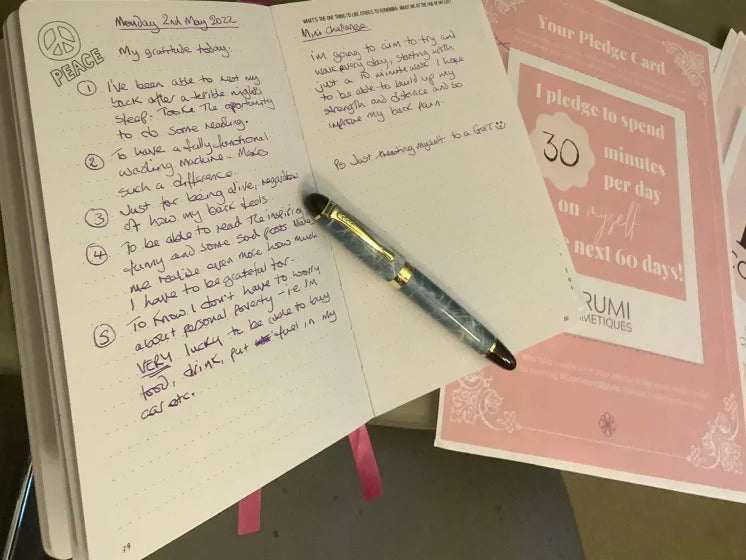 PEACE
Monday 2nd May 2022
My gratitude today.
1 I've been able to rest my
back after a terrible night's
sleep. Took The opportunity
to do some reading.
2 To have a fully functional
washing machine - Makes
such a difference.
3 Just for being alive, regardless
of how my back feels
4 To be able to read The inspiring
funny and some sad posts Make
me realise even more how much
I have to be grateful for.
5 To know I don't have to worry
about personal poverty - i.e I'm
VERY lucky to be able to buy
food, drink, put fuel in my
car etc.
79
WHAT'S THE ONE THING I'D LIKE OTHERS TO REMEMBER ABOUT ME AT THE END OF MY LIFE?
Mini challenge
i'm going to aim to try and
walk every day, starting with
just a 10 minute walk. I hope
to be able to build up my
strength and distance and so
improve my back pain.
PS Just treating myself to a GnT
Your Pledge Card
I pledge to spend
30 minutes
per day
on myself
next 60 days!
RUMI